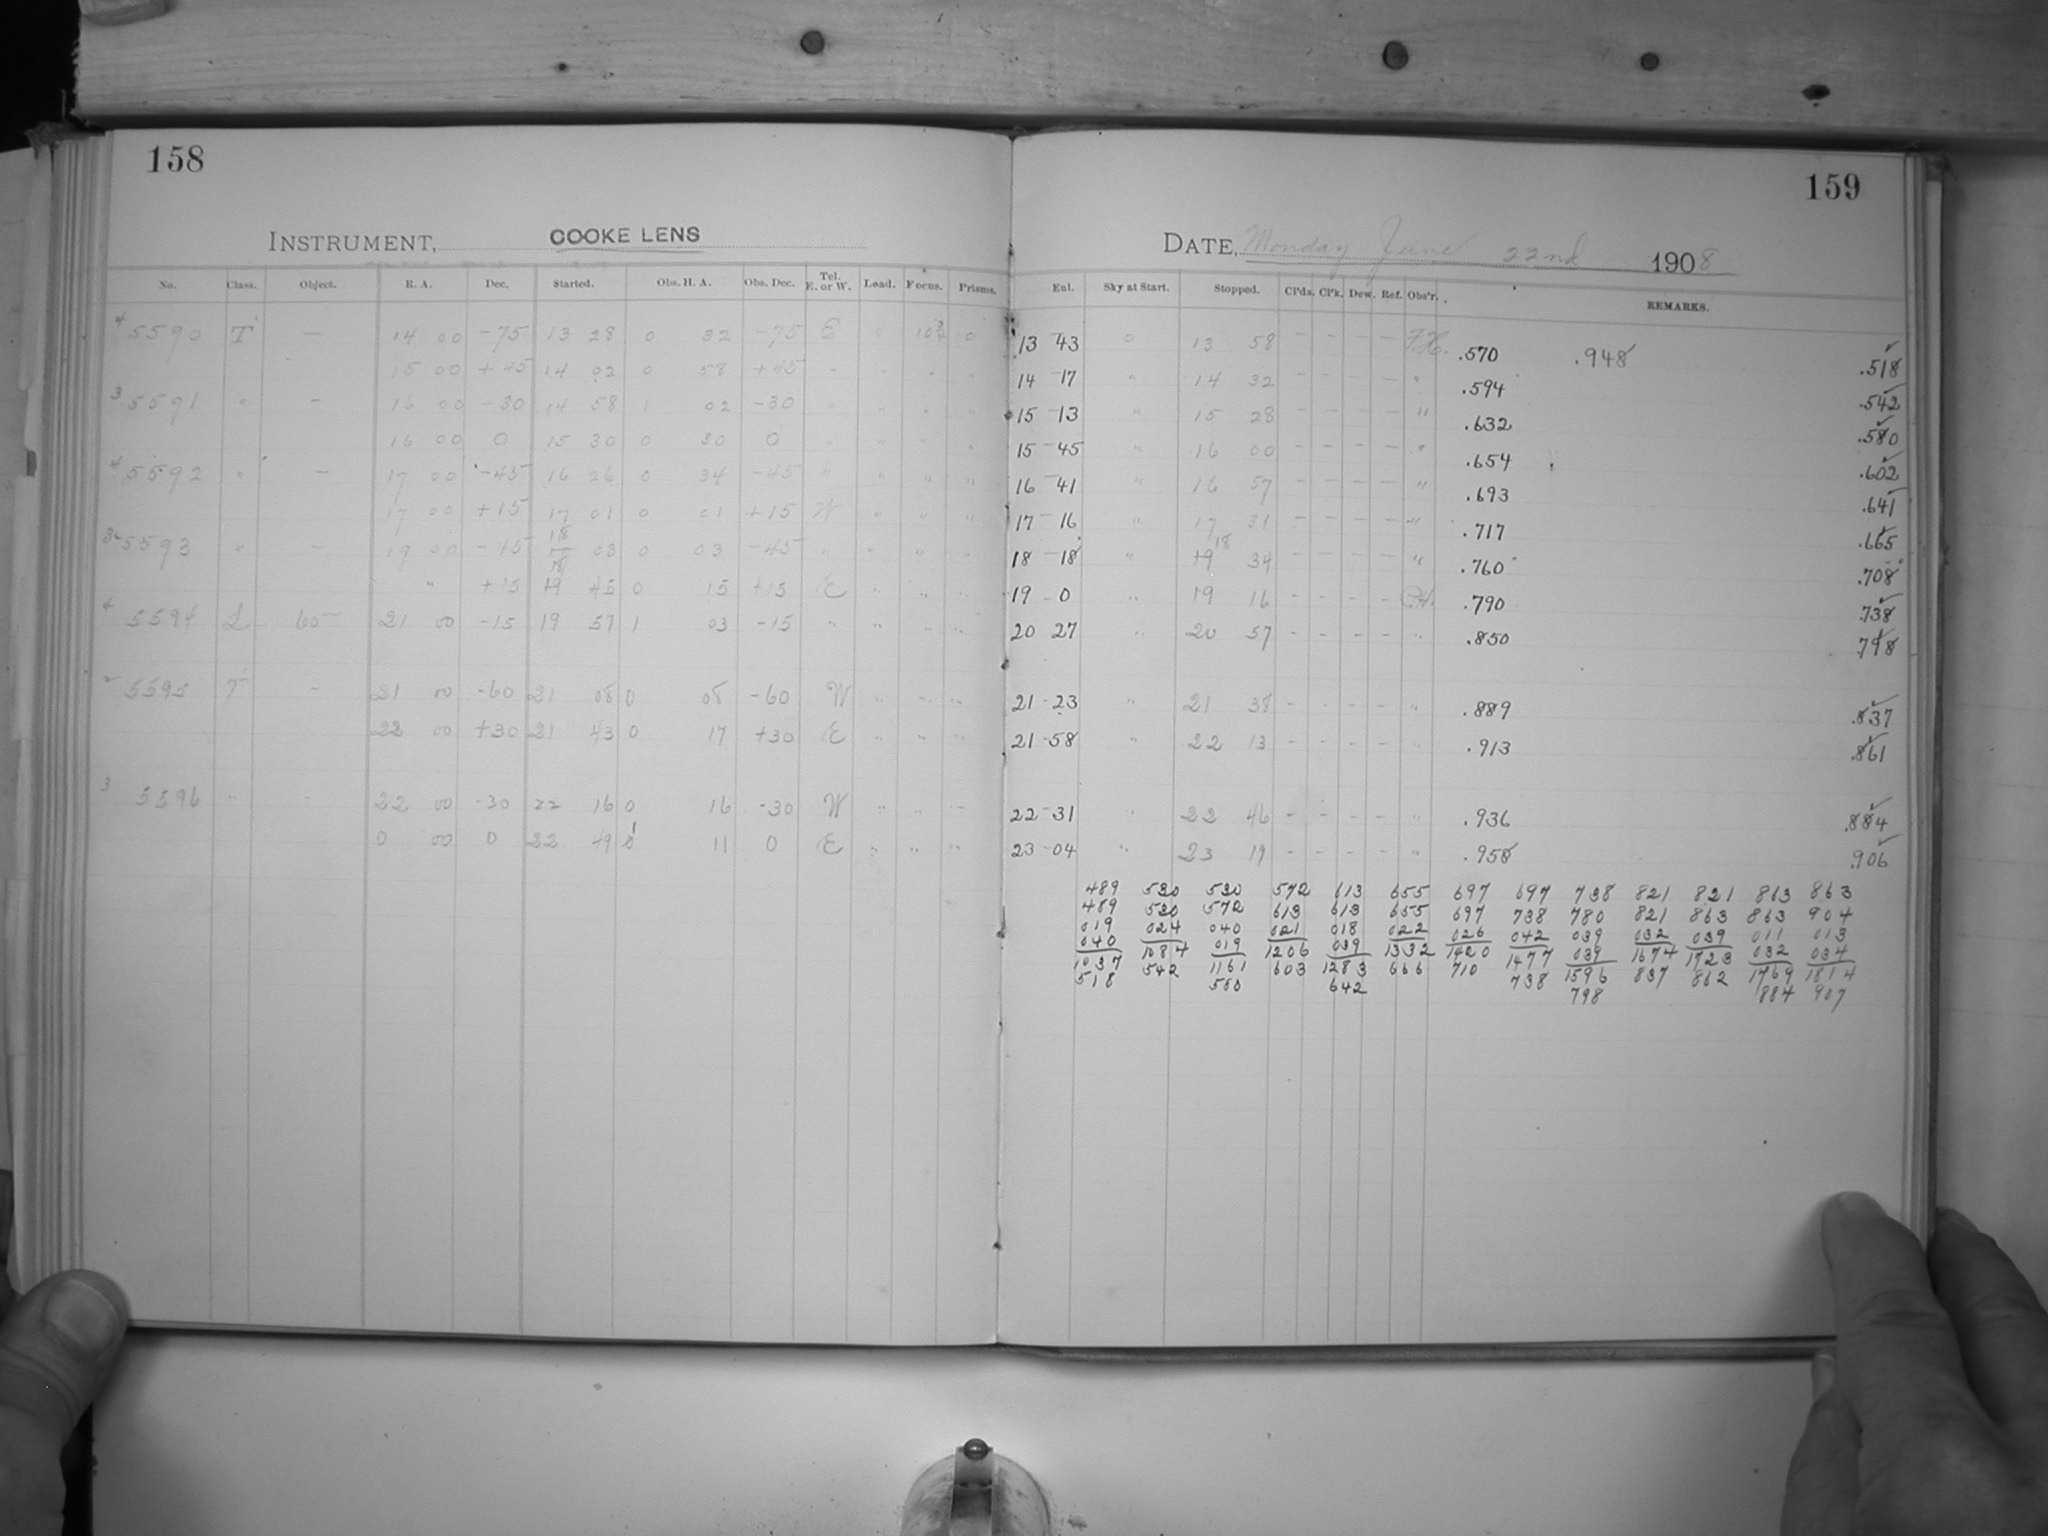 158
INSTRUMENT, COOKE LENS
No. Class. Object. R. A. Dec. Started. Obs. H. A. Obs. Dec. Tel. E. or W. Load. Focus. Prisms.
4 5590 T — 14 00 -75 13 28 0 32 -75 E
15 00 +45 14 02 0 58 +45 " " " "
3 5591 " — 16 00 -30 14 58 1 02 -30 " " " "
16 00 0 15 30 0 30 0 " " " "
4 5592 " — 17 00 -45 16 26 0 34 -45 " " " "
17 00 +15 17 01 0 01 +15 W " " "
3 5593 " — 19 00 -45 18 03 0 03 -45 " " " "
" +15 45 0 15 +15 E " " "
4 5594 L 60 21 00 -15 19 57 1 03 -15 " " " "
2 5595 T - 21 00 -60 21 08 0 08 -60 W " " "
22 00 +30 21 43 0 17 +30 E " " "
3 5596 " - 22 00 -30 22 16 0 16 -30 W " " "
0 00 0 22 49 1 11 0 E " " "
159
DATE, Monday June 22nd 1908
Eul. Sky at Start. Stopped. Cl'ds. Cl'k. Dew. Ref. Obs'r. REMARKS.
13 43 0 13 58 - - - - .570 .948 .518
14 17 " 14 32 - - - - " .594 .542
15 13 " 15 28 - - - - " .632 .580
15 45 " 16 00 - - - - " .654 .602
16 41 " 16 57 - - - - " .693 .641
17 16 " 17 31 - - - - " .717 .665
18 18 " 18 34 - - - - " .760 .708
19 0 " 19 16 - - - - .790 .738
20 27 " 20 57 - - - - " .850 .798
21 23 " 21 38 - - - - " .889 .837
21 58 " 22 13 - - - - " .913 .861
22 31 " 22 46 - - - - " .936 .884
23 04 " 23 19 - - - - " .958 .906
489 530 530 572 613 655 697 697 738 821 821 863 863
489 530 572 613 613 655 697 738 780 821 863 863 904
019 024 040 021 018 022 026 042 039 032 039 011 013
040 1084 019 1206 039 1332 1420 1477 039 1674 1723 032 034
1037 542 1161 603 1283 666 710 738 1596 837 862 1769 1814
518 580 642 798 884 907